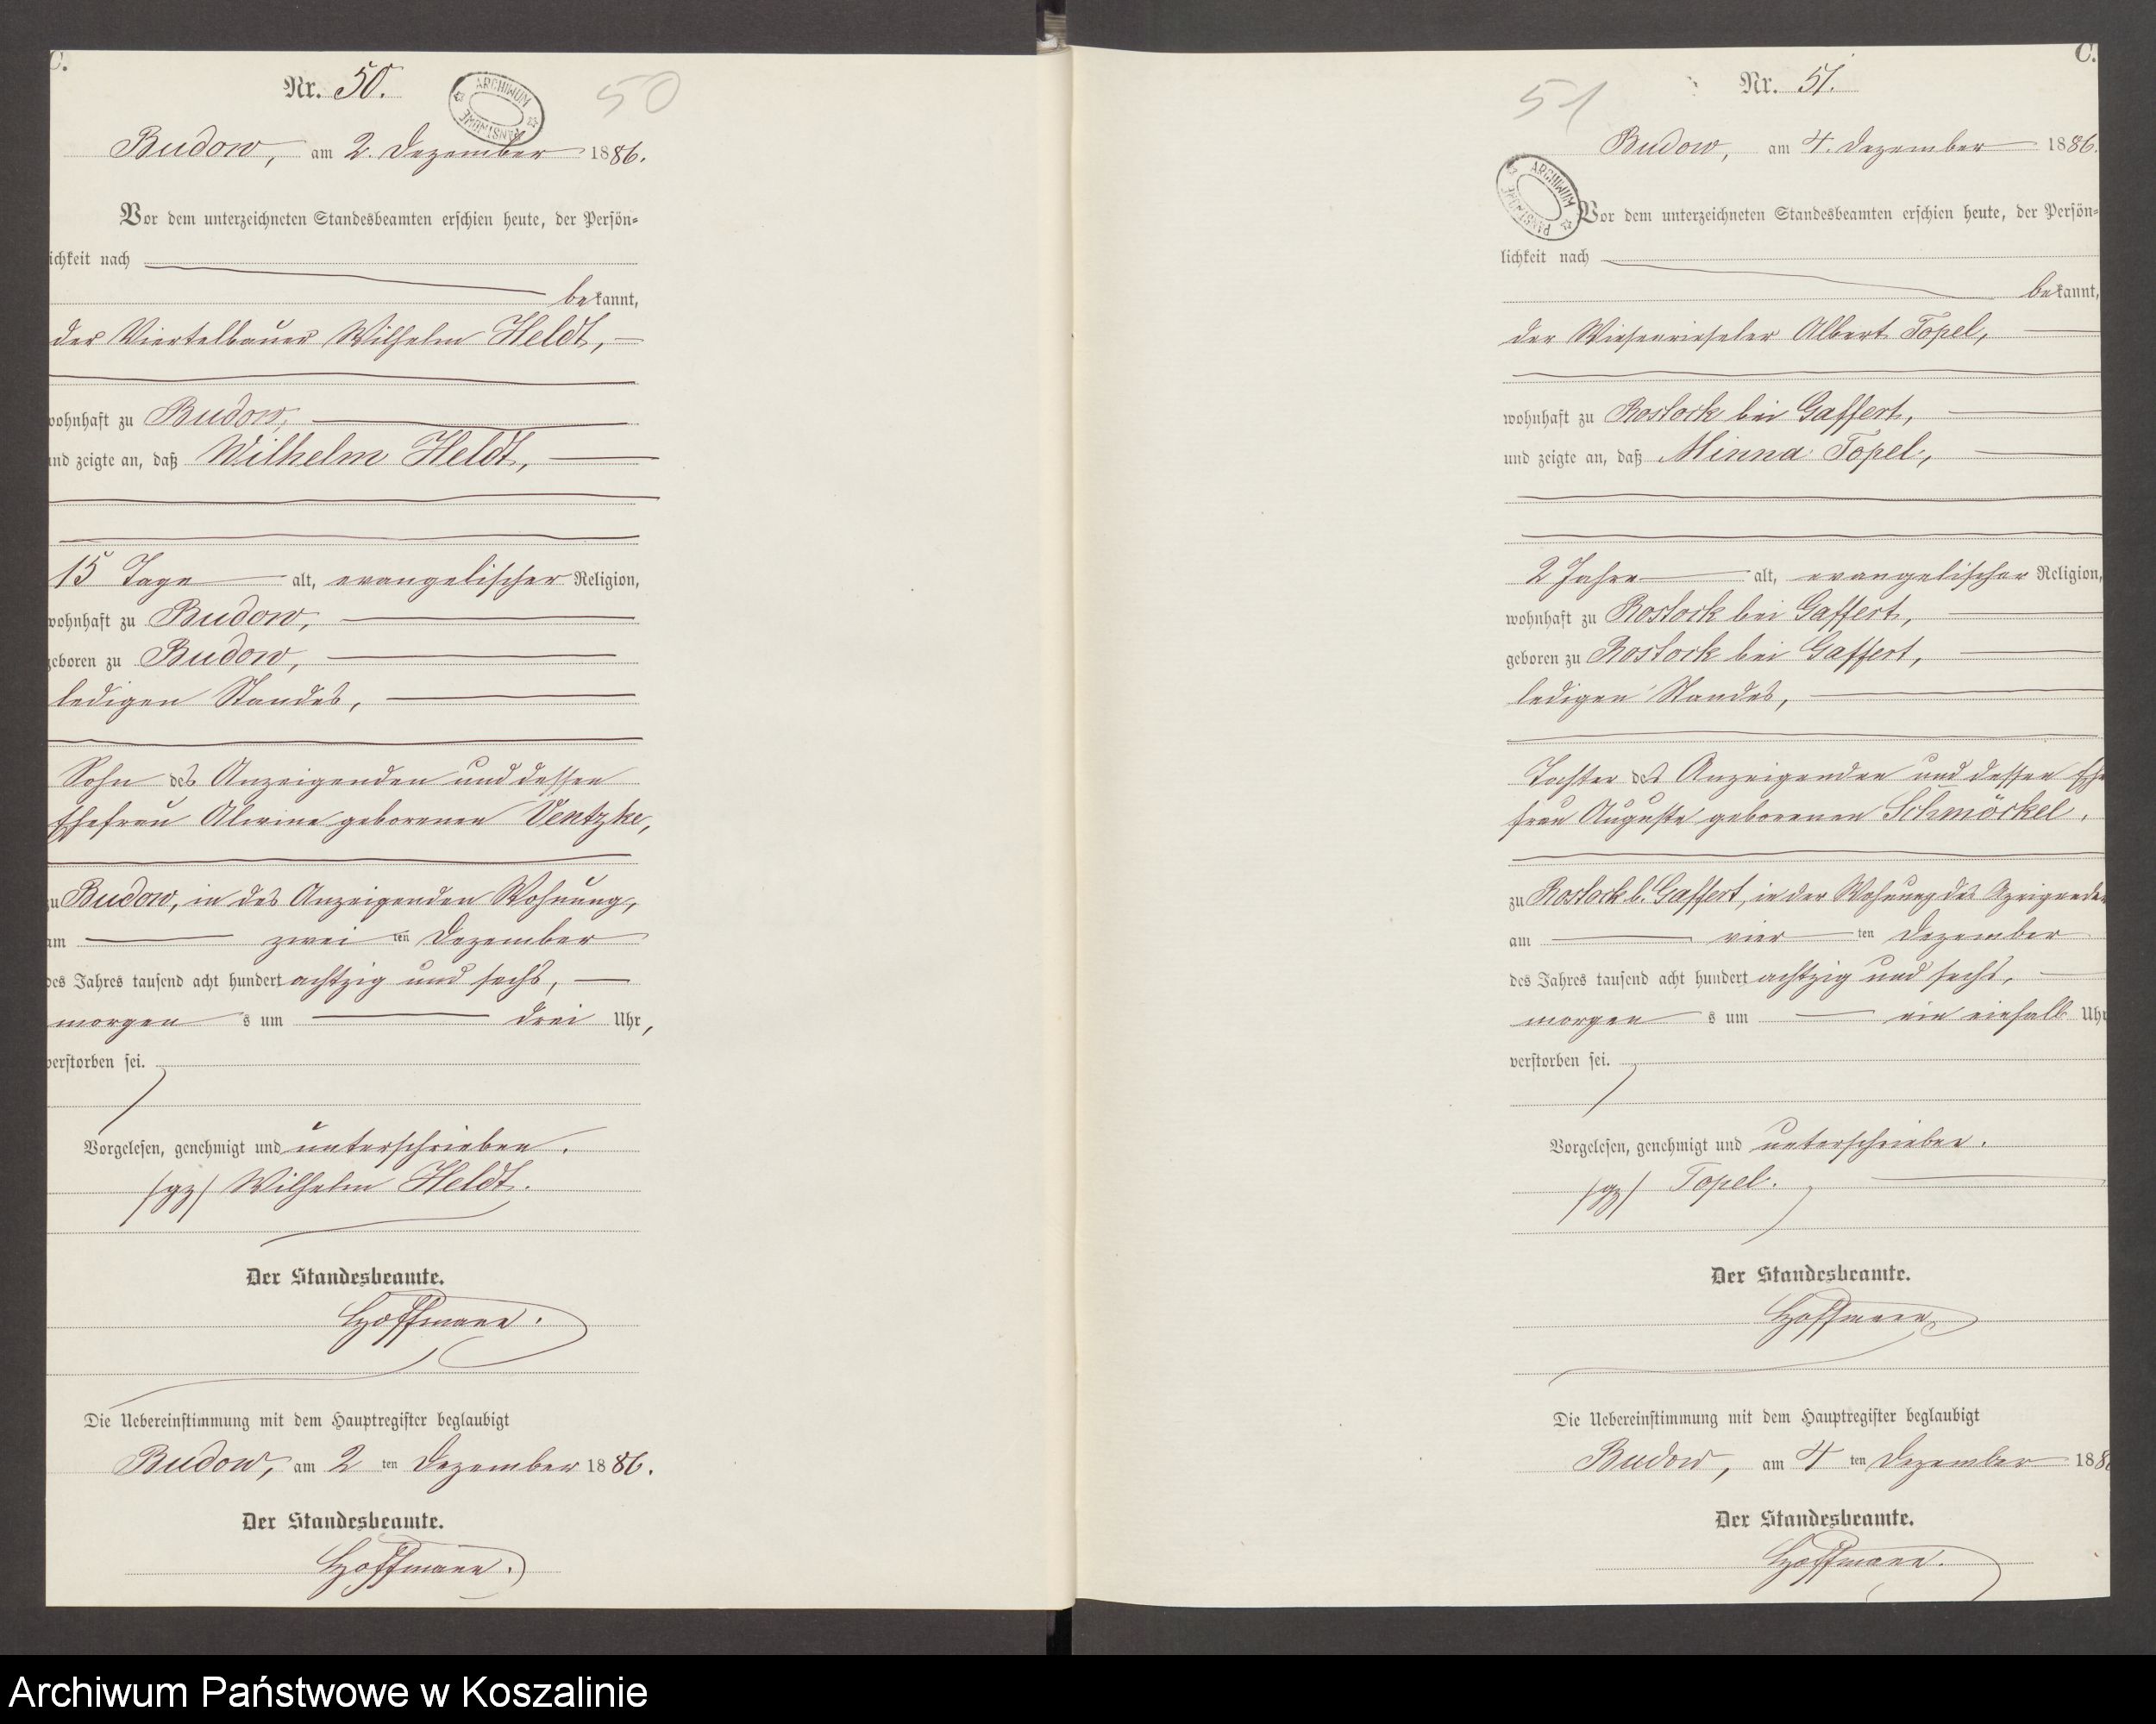 C.
Nr. 50.
50
ARCHIWUM PAŃSTWOWE
Budow, am 2. Dezember 1886.
Vor dem unterzeichneten Standesbeamten erschien heute, der Persön-
ichkeit nach
bekannt,
der Viertelbauer Wilhelm Heldt,
wohnhaft zu Budow,
und zeigte an, daß Wilhelm Heldt,
15 Tage alt, evangelischer Religion,
wohnhaft zu Budow,
geboren zu Budow,
ledigen Standes,
Sohn des Anzeigenden und dessen
Ehefrau Alwine geborenen Ventzke,
zu Budow, in des Anzeigenden Wohnung,
am zwei ten Dezember
des Jahres tausend acht hundert achtzig und sechs,
morgen s um drei Uhr,
verstorben sei.
Vorgelesen, genehmigt und unterschrieben.
/gz/ Wilhelm Heldt.
Der Standesbeamte.
Hoffmann.
Die Uebereinstimmung mit dem Hauptregister beglaubigt
Budow, am 2 ten Dezember 1886.
Der Standesbeamte.
Hoffmann.
C.
Nr. 51.
51
ARCHIWUM PAŃSTWOWE
Budow, am 4. Dezember 1886.
Vor dem unterzeichneten Standesbeamten erschien heute, der Persön-
lichkeit nach
bekannt,
der Wiesenrieseler Albert Topel,
wohnhaft zu Rostock bei Gaffert,
und zeigte an, daß Minna Topel,
2 Jahre alt, evangelischer Religion,
wohnhaft zu Rostock bei Gaffert,
geboren zu Rostock bei Gaffert,
ledigen Standes,
Tochter des Anzeigenden und dessen Ehe
frau Auguste geborenen Schmöckel,
zu Rostock b. Gaffert, in der Wohnung des
am vier ten Dezember
des Jahres tausend acht hundert achtzig und sechs,
morgen s um ein einhalb Uhr
verstorben sei.
Vorgelesen, genehmigt und unterschrieben.
/gz/ Topel.
Der Standesbeamte.
Hoffmann
Die Uebereinstimmung mit dem Hauptregister beglaubigt
Budow, am 4 ten Dezember 188
Der Standesbeamte.
Hoffmann.
Archiwum Państwowe w Koszalinie